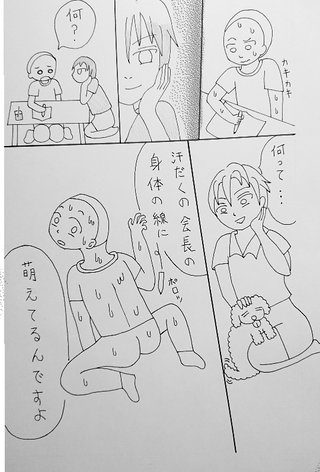 カキカキ
何?
何って…
汗だくの会長の
身体の線に
ポロッ
萌えてるんですよ